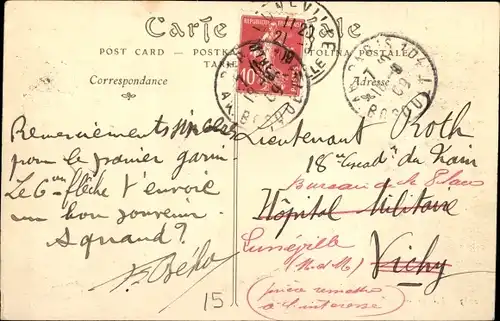 Carte Postale
POST CARD — POSTKA
TOLINA POSTALE
Correspondance
Adresse
10
Remerciements sincères
pour le panier garni
Le 6e flèche t'envoie
un bon souvenir
A quand ?
15
Lieutenant Roth
18e Escad. du Train
Bureau de la Place
Hôpital Militaire
Lunéville
(M. et M.)
Vichy
prière remettre
à l'intéressé